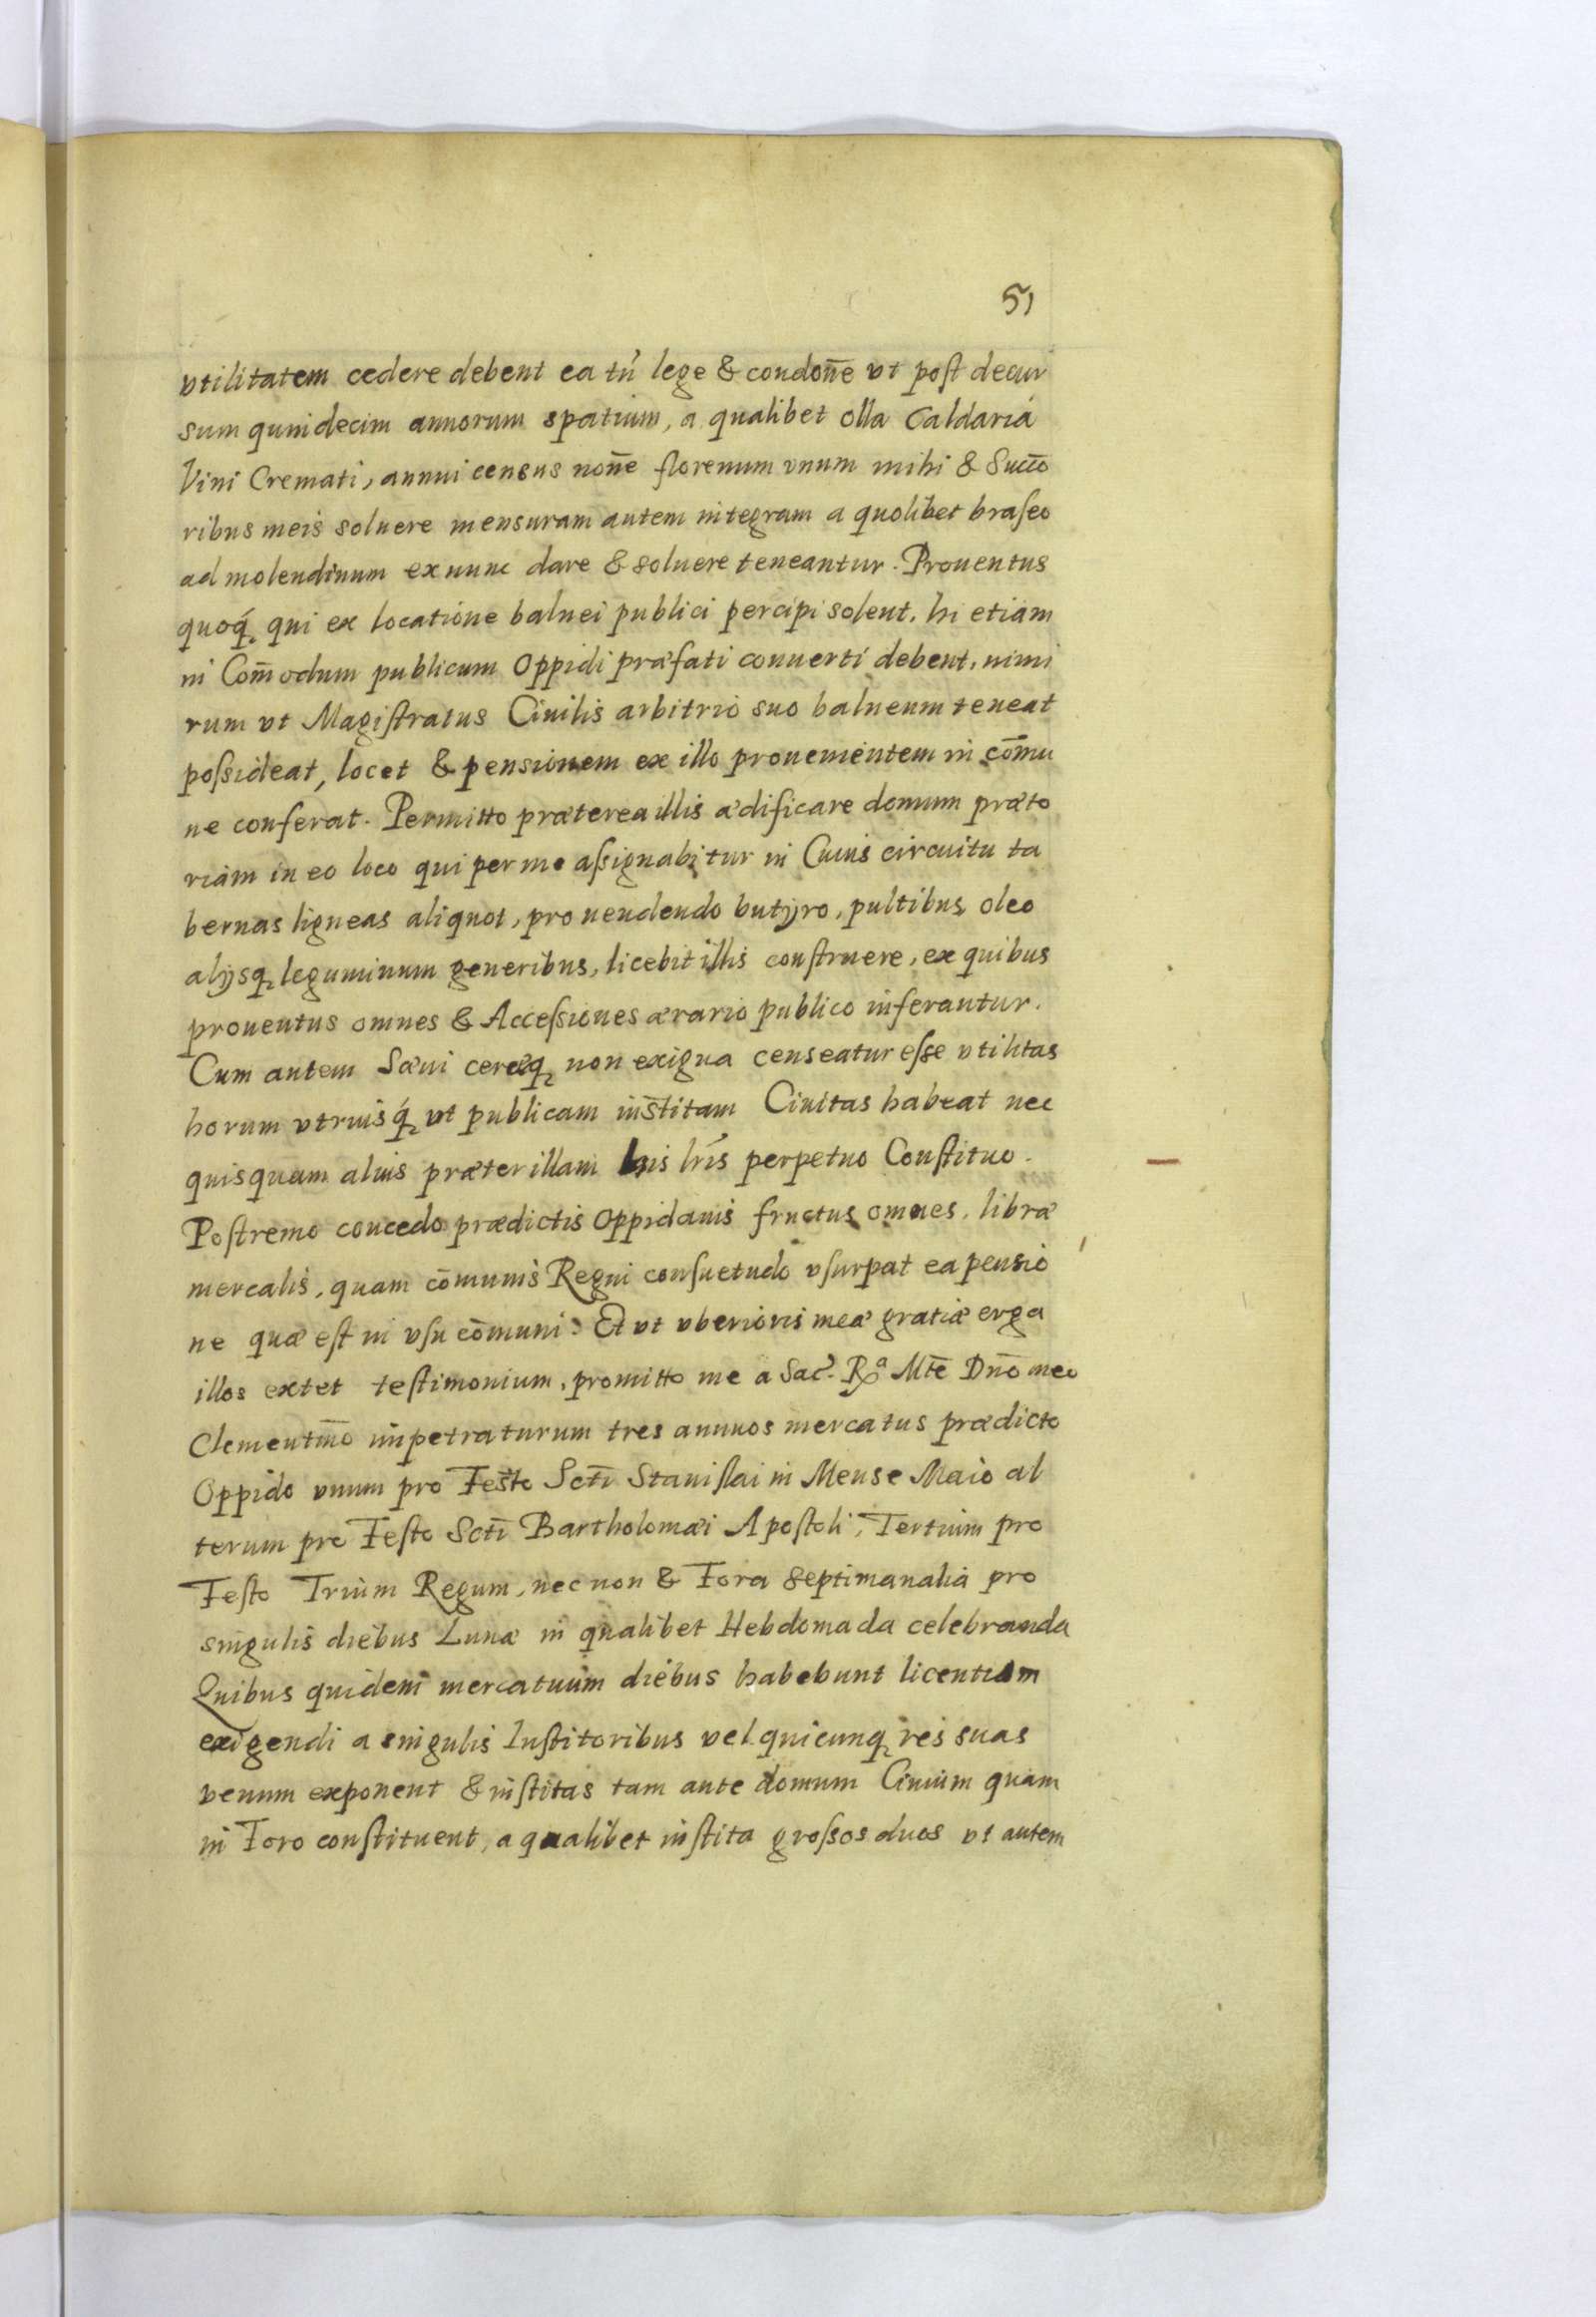 51
vtilitatem cedere debent ea tñ lege & condoñe vt post decur
sum quindecim annorum spatium, a qualibet olla Caldaria
Vini Cremati, annui census noñe florenum vnum mihi & Succō
ribus meis soluere mensuram autem integram a quolibet braseo
ad molendinum ex nunc dare & soluere teneantur. Prouentus
quoq́; qui ex locatione balnei publici percipi solent, hi etiam
in Com̄odum publicum Oppidi præfati conuerti debent, nimi
rum vt Magistratus Ciuilis arbitrio suo balneum teneat
possideat, locet & pensionem ex illo prouenientem in com̄u
ne conferat. Permitto præterea illis ædificare domum præto
riam in eo loco qui per me assignabitur in Cuius circuitu ta
bernas ligneas aliquot, pro uendendo butyro, pultibus, oleo
alijsq; leguminum generibus, licebit illis construere, ex quibus
prouentus omnes & Accessiones ærario publico inferantur.
Cum autem Sæui ceræq; non exigua censeatur esse vtilitas
horum vtriusq́; vt publicam institam Ciuitas habeat nec
quisquam alius præter illam his lr̃is perpetuo Constituo.
Postremo concedo prædictis Oppidanis fructus omnes, libræ
mercalis, quam cōmunis Regni consuetudo vsurpat ea pensio
ne quæ est in vsu cōmuni: Et vt vberioris meæ gratiæ erga
illos extet testimonium, promitto me a Sac. Rᵃ Mt̄e Dn̄o meo
Clementm̄o impetraturum tres annuos mercatus prædicto
Oppido vnum pro Festo Sctī Stanislai in Mense Maio al
terum pro Festo Sctī Bartholomæi Apostoli, Tertium pro
Festo Trium Regum, nec non & Fora Septimanalia pro
singulis diebus Lunæ in qualibet Hebdomada celebranda
Quibus quidem mercatuum diebus habebunt licentiam
exigendi a singulis Institoribus vel quicunq; res suas
venum exponent & institas tam ante domum Ciuium quam
in Foro constituent, a qualibet instita grossos duos vt autem